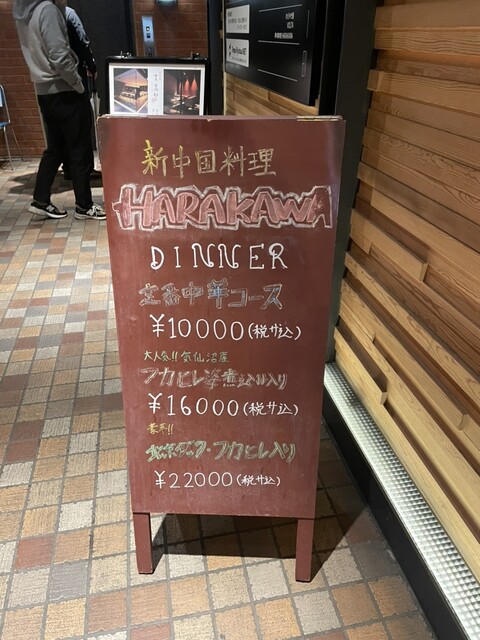 新中国料理
HARAKAWA
DINNER
中華コース
¥10000(税サ込)
大人気!! 気仙沼産
フカヒレ姿煮込入り
¥16000(税サ込)
北京ダック・フカヒレ入り
¥22000(税サ込)